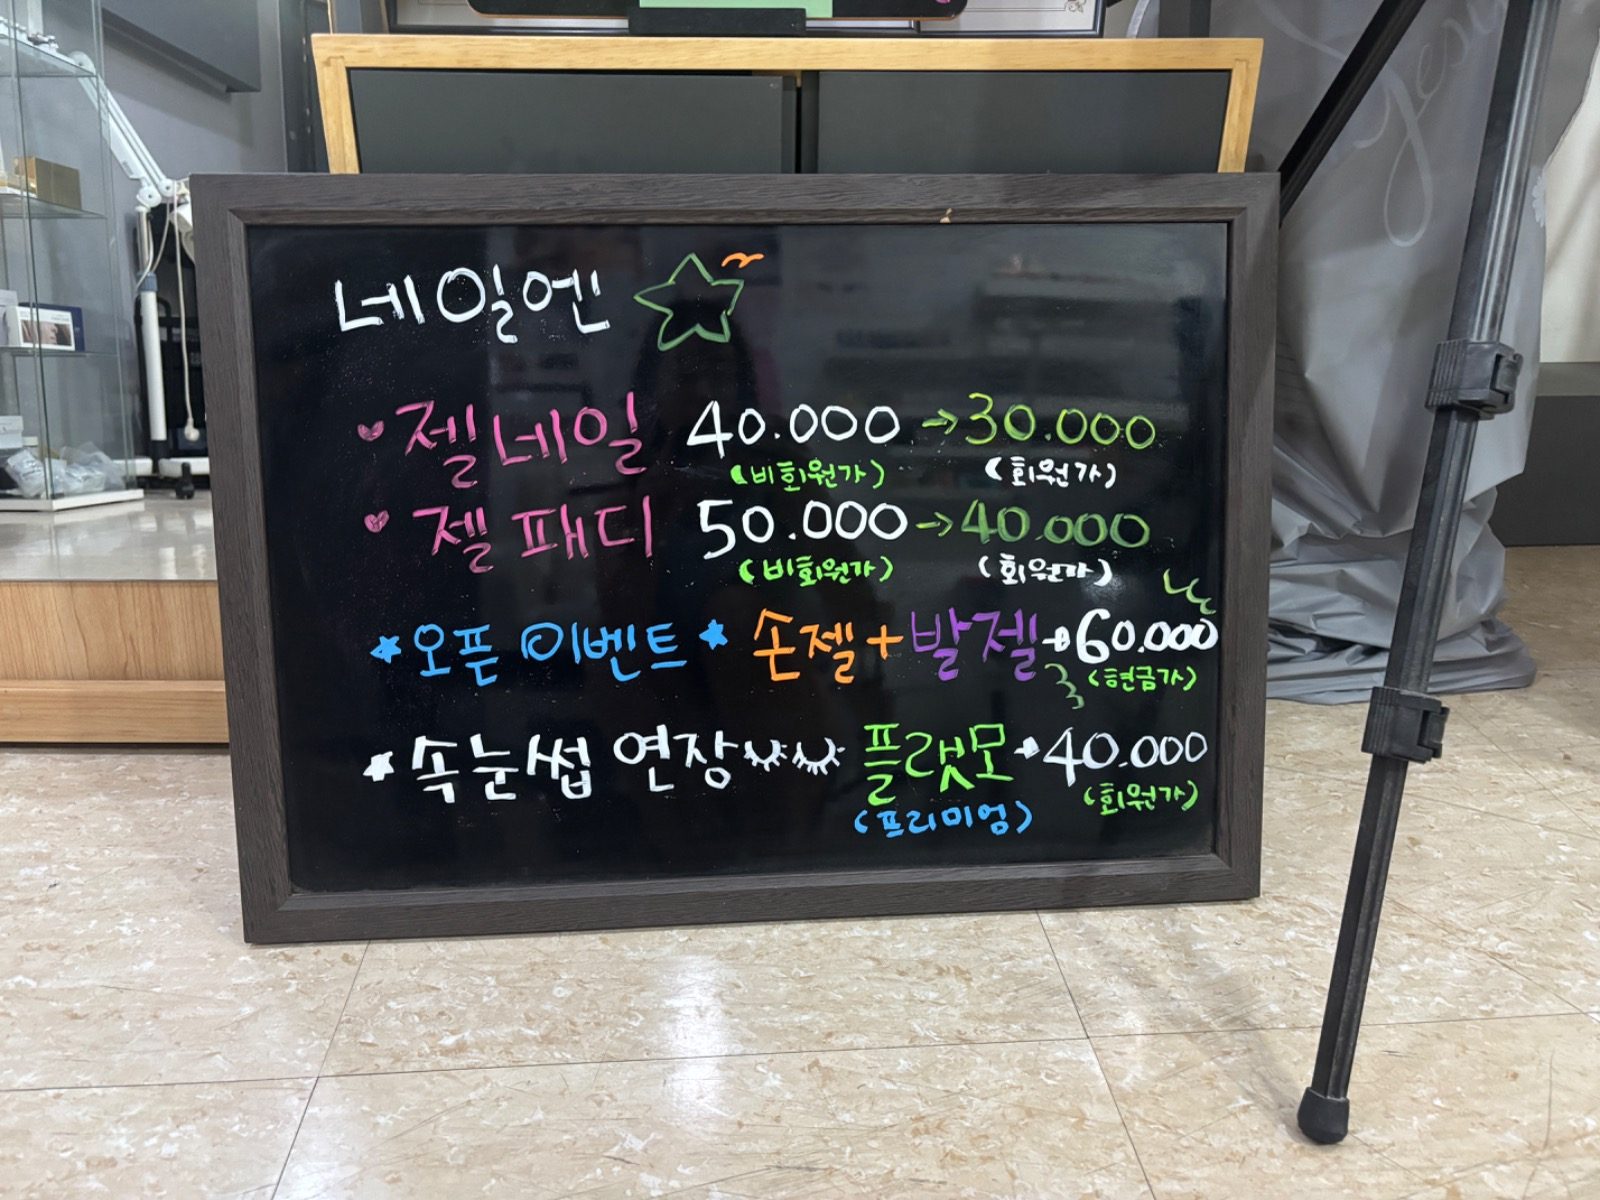 네일엔
젤네일 40.000 → 30.000
(비회원가) (회원가)
젤 패디 50.000 → 40.000
(비회원가) (회원가)
오픈 이벤트 손젤+발젤 60.000
(현금가)
속눈썹 연장 플랫모 40.000
(프리미엄) (회원가)